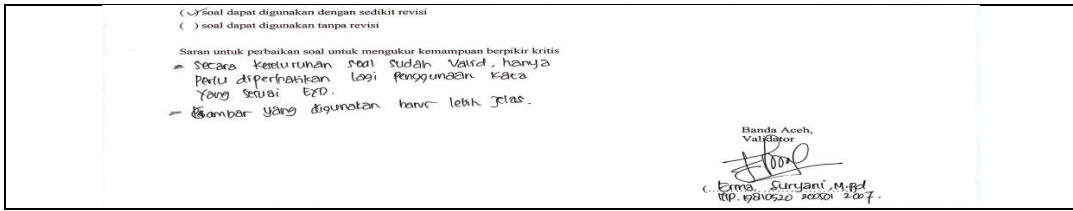 (✓) soal dapat digunakan dengan sedikit revisi
( ) soal dapat digunakan tanpa revisi
Saran untuk perbaikan soal untuk mengukur kemampuan berpikir kritis
- Secara keseluruhan soal sudah valid, hanya
perlu diperhatikan lagi penggunaan kata
yang sesuai EYD.
- Gambar yang digunakan harus lebih jelas.
Banda Aceh,
Validator
(...Erma Suryani, M.Pd
NIP. 19810520 200501 2007.